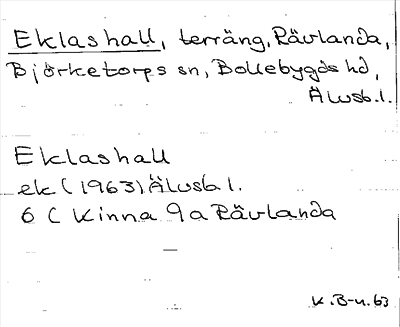 Eklashall, terräng, Rävlanda,
Björketorps sn, Bollebygds hd,
Älvsb.l.
Eklashall
ek (1963) Älvsb l.
6 C Kinna 9a Rävlanda
K.B-n. 63